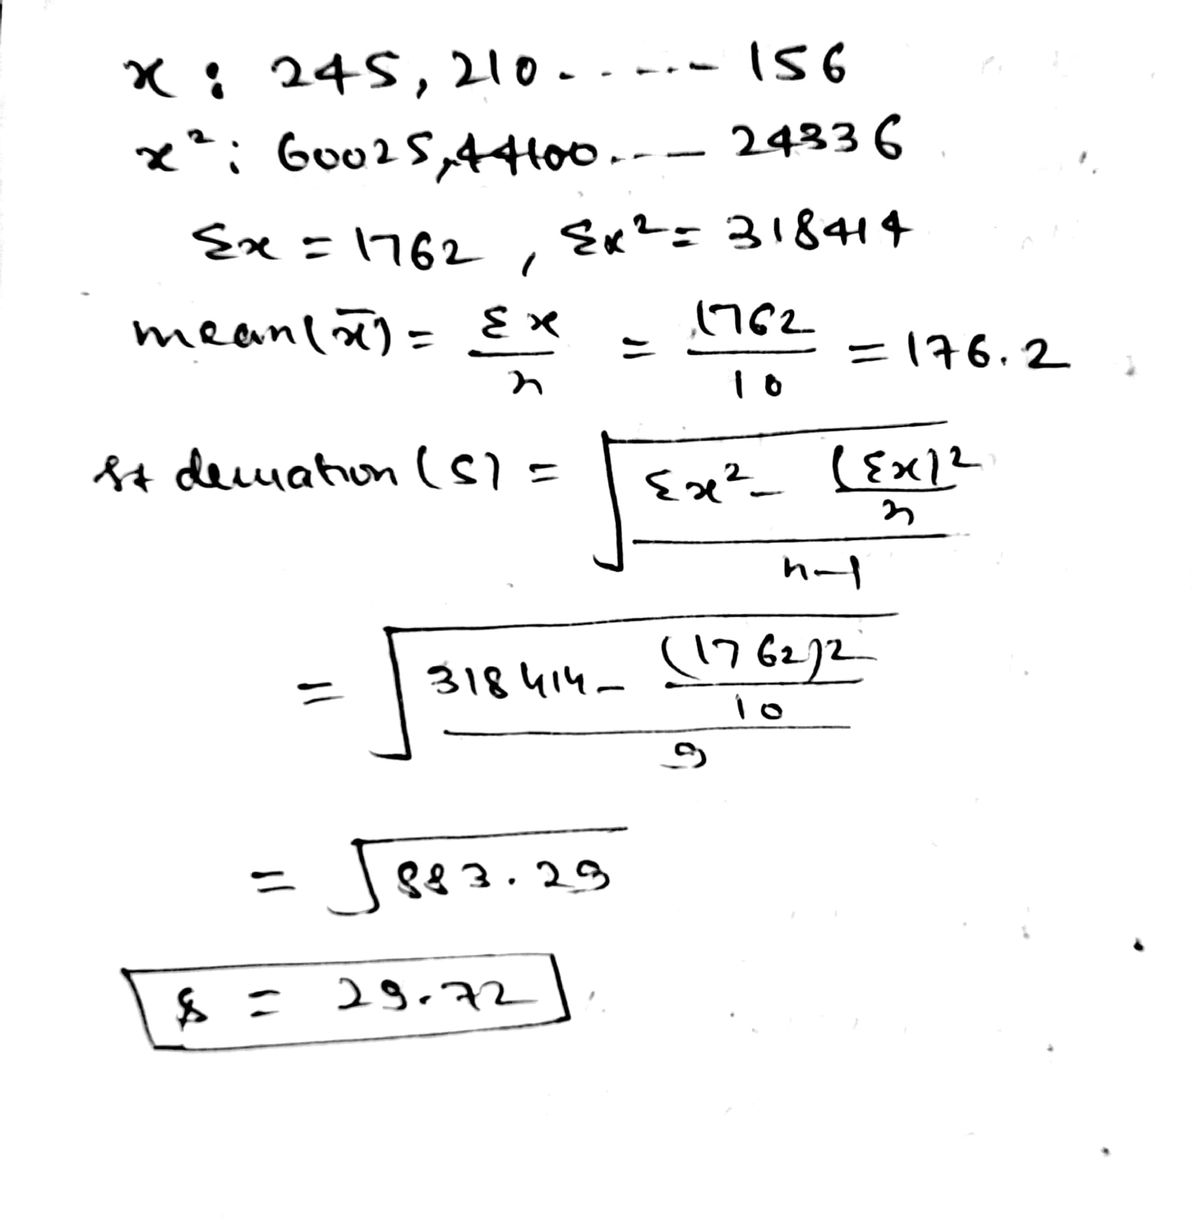 x : 245, 210 - - - - - - 156
x² : 60025, 44100 - - - - 24336
Σx = 1762 , Σx² = 318414
mean(x̄) = Σx/n = 1762/10 = 176.2
st deviation (S) = √((Σx² - (Σx)²/n)/(n-1))
= √((318414 - (1762)²/10)/9)
= √883.29
s = 29.72